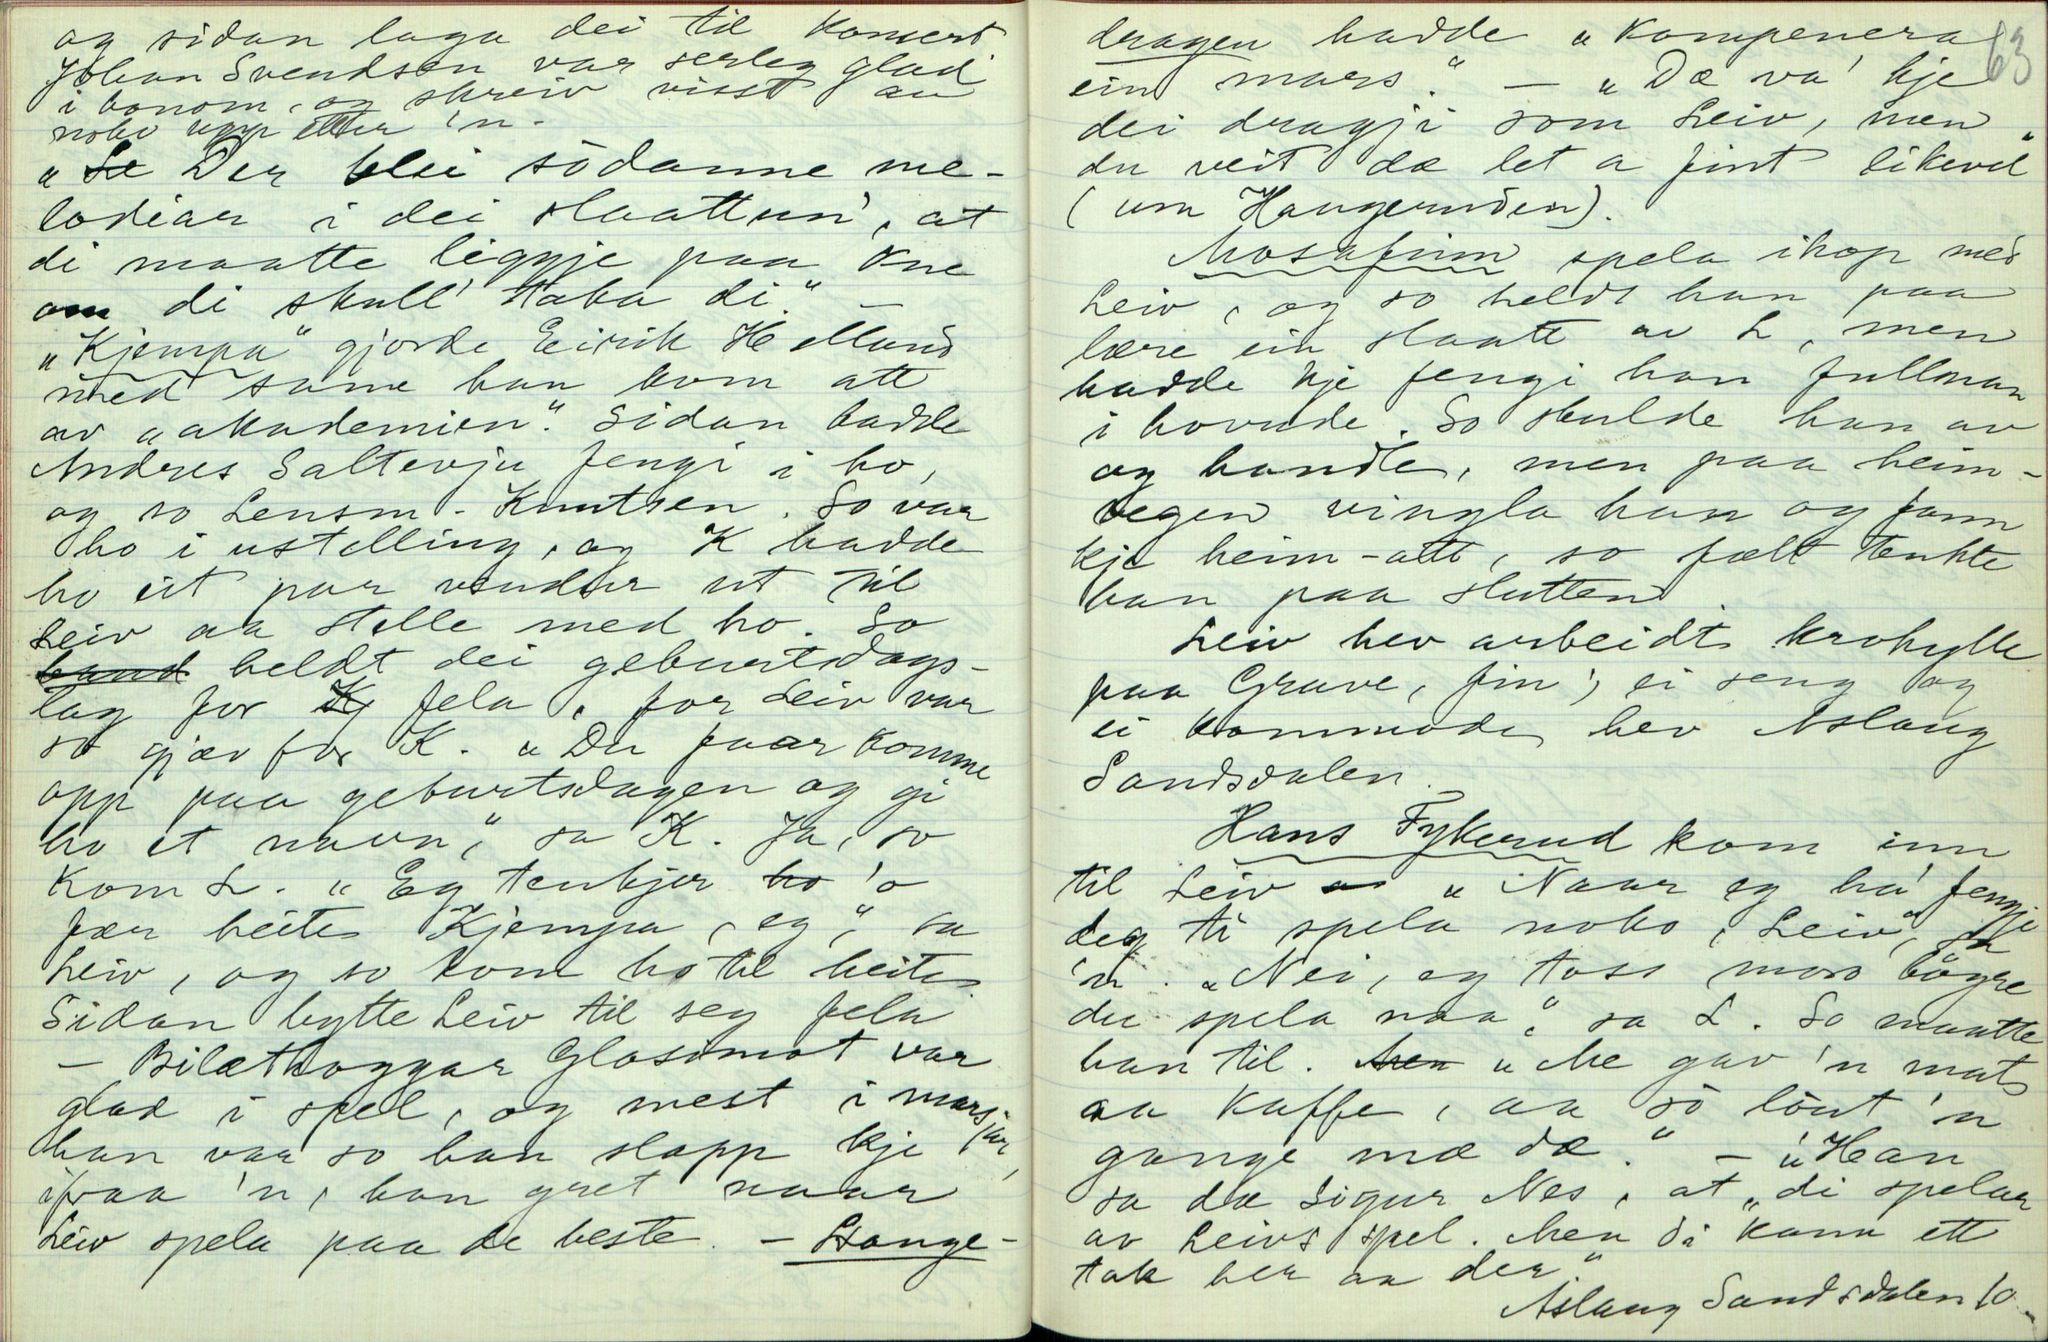 og sidan laga dei til Konsert.
Johan Svendsen var serleg glad
i honom, og skreiv visst au
noko upp etter 'n.
„Der blei södanne me-
lodiar i dei slaattun', at
di maatte liggje paa kne
om di skull' taka di." —
„Kjempa" gjorde Eirik Helland
med same han kom att
av „akademien". Sidan hadde
Andres Saltevju fengi i ho,
og so Lensm. Knutsen. So var
ho i ustelling, og K hadde
ho eit par vendur ut til
Leiv aa stelle med ho. So
heldt dei geburtsdags-
lag for fela, for Leiv var
so gjæv for K. „Du faar komme
opp paa geburtsdagen og gi
ho et navn," sa K. Ja, so
kom L. „Eg tenkjer 'o
fær heite Kjempa, eg," sa
Leiv, og so kom ho til heite.
Sidan bytte Leiv til seg fela
— Bilæthoggar Glosimot var
glad i spel, og mest i marsjar,
han var so han slapp kje
ifraa 'n, han gret naar
Leiv spela paa de beste. — Hauge-
63
dragen hadde „Kompenera
ein mars." — „Dæ va' kje
dei dragji som Leiv, men
du veit dæ let a fint likevel"
(um Haugeruden).
Mosafinn spela ihop med
Leiv, og so heldt han paa
lære ein slaatt av L, men
hadde kje fengi han fullnan
i hovude. So skulde han av
og handle, men paa heim-
vegen vingla han og fann
kje heim-att, so fælt tenkte
han paa slutten.
Leiv hev arbeidt krohylle
paa Grave, fin', ei seng og
ei kommode hev Aslaug
Sandsdalen.
Hans Fykerud kom inn
til Leiv „Naar eg ha' fengje
deg ti spela noko, Leiv", sa
'n. „Nei, eg toss mor' högre
du spela naa", sa L. So maatte
han til. „Me gav 'n mat
aa kaffe, aa so löut 'n
gange mæ dæ." — „Han
sa dæ Sigur Nes, at „di spelar
av Leivs spel. Men di kann ett
tak her aa der"
Aslaug Sandsdalen 10